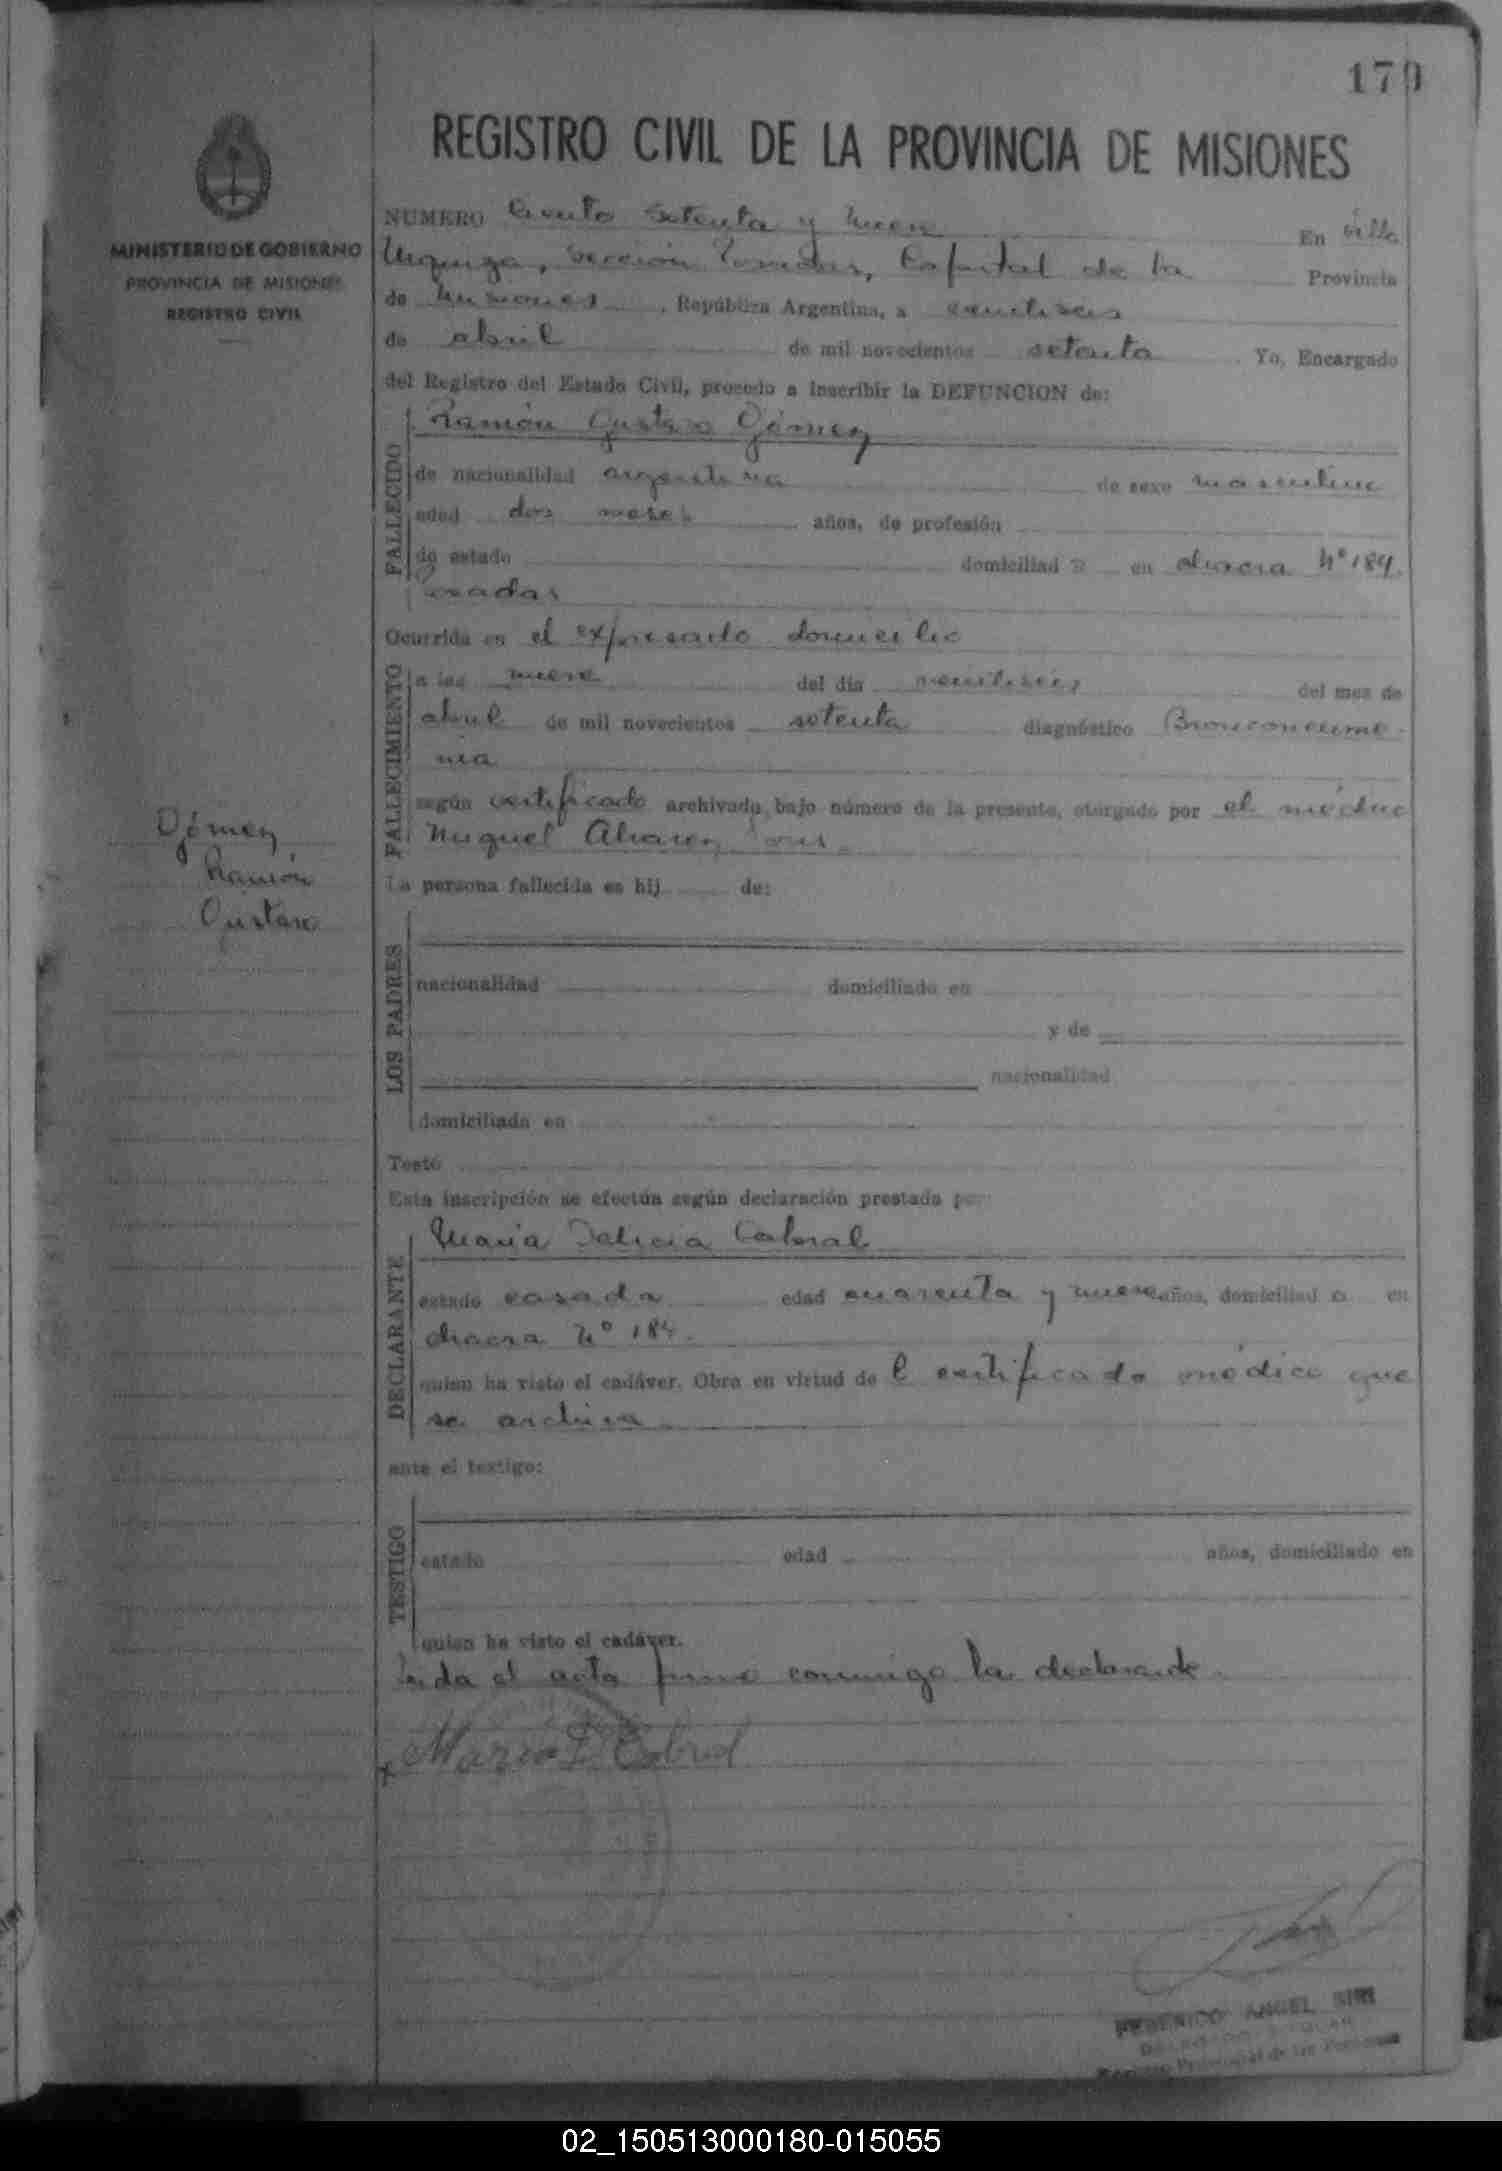 179
REGISTRO CIVIL DE LA PROVINCIA DE MISIONES
MINISTERIO DE GOBIERNO
PROVINCIA DE MISIONES
REGISTRO CIVIL
NUMERO Ciento setenta y nueve En villa
Urquiza, Sección Posadas, Capital de la Provincia
de Misiones, República Argentina, a veintiseis
de abril de mil novecientos setenta Yo, Encargado
del Registro del Estado Civil, procedo a inscribir la DEFUNCION de:
Ramón Gustavo Gómez
FALLECIDO
de nacionalidad argentina de sexo masculino
edad dos meses años, de profesión
de estado domiciliad en chacra Nº 184
Posadas
Ocurrida en el expresado domicilio
FALLECIMIENTO
a las nueve del día veintiseis del mes de
abril de mil novecientos setenta diagnóstico Bronconeumo-
nia
según certificado archivado bajo número de la presente, otorgado por el médico
Miguel Alvarez
Gómez
Ramón
Gustavo
La persona fallecida es hij de:
LOS PADRES
nacionalidad domiciliado en
y de
nacionalidad
domiciliada en
Testó
Esta inscripción se efectúa según declaración prestada por:
María Felicia Cabral
DECLARANTE
estado casada edad cuarenta y nueve años, domiciliad a en
chacra Nº 184.
quien ha visto el cadáver. Obra en virtud de l certificado médico que
se archiva
ante el testigo:
TESTIGO
estado edad años, domiciliado en
quien ha visto el cadáver.
Leida el acta firma conmigo la declarante.
x María F. Cabral
FEDERICO ANGEL SIRI
Provincial de las Personas
02_150513000180-015055